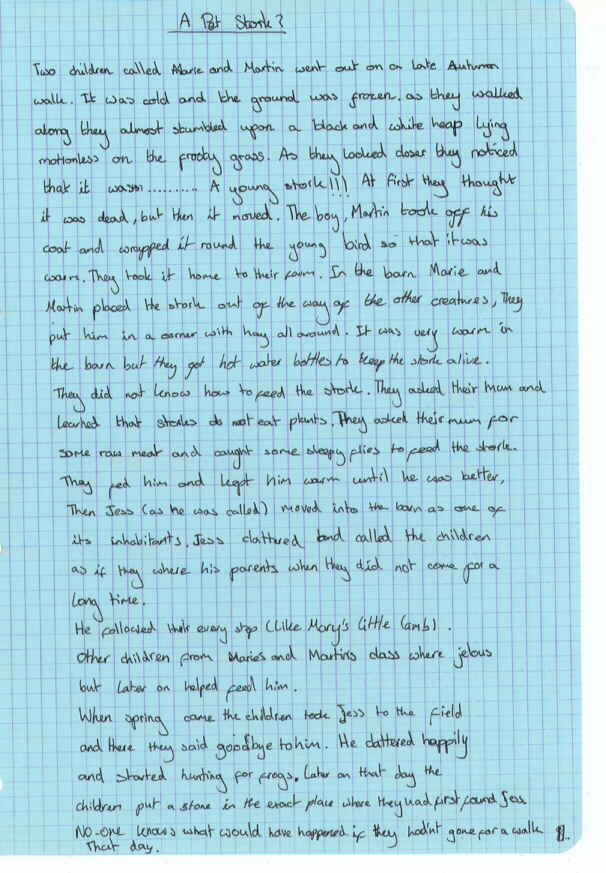 A Pet Stork?
Two children called Marie and Martin went out on a late Autumn
walk. It was cold and the ground was frozen. as they walked
along they almost stumbled upon a black and white heap lying
motionless on the frosty grass. As they looked closer they noticed
that it wasn.......... A young stork!!! At first they thought
it was dead, but then it moved. The boy, Martin took off his
coat and wrapped it round the young bird so that it was
warm. They took it home to their farm. In the barn Marie and
Martin placed the stork out of the way of the other creatures, They
put him in a corner with hay all around. It was very warm in
the barn but they got hot water bottles to keep the stork alive.
They did not know how to feed the stork. They asked their mum and
learned that storks do not eat plants. They asked their mum for
some raw meat and caught some sleepy flies to feed the stork.
They fed him and kept him warm until he was better,
Then Jess (as he was called) moved into the barn as one of
its inhabitants. Jess clattered and called the children
as if they where his parents when they did not come for a
long time.
He followed their every step (Like Mary's little lamb).
Other children from Marie's and Martin's class where jelous
but later on helped feed him.
When spring came the children took Jess to the field
and there they said goodbye to him. He clattered happily
and started hunting for frogs. Later on that day the
children put a stone in the exact place where they had first found Jess
NO-one knows what would have happened if they hadn't gone for a walk
That day.